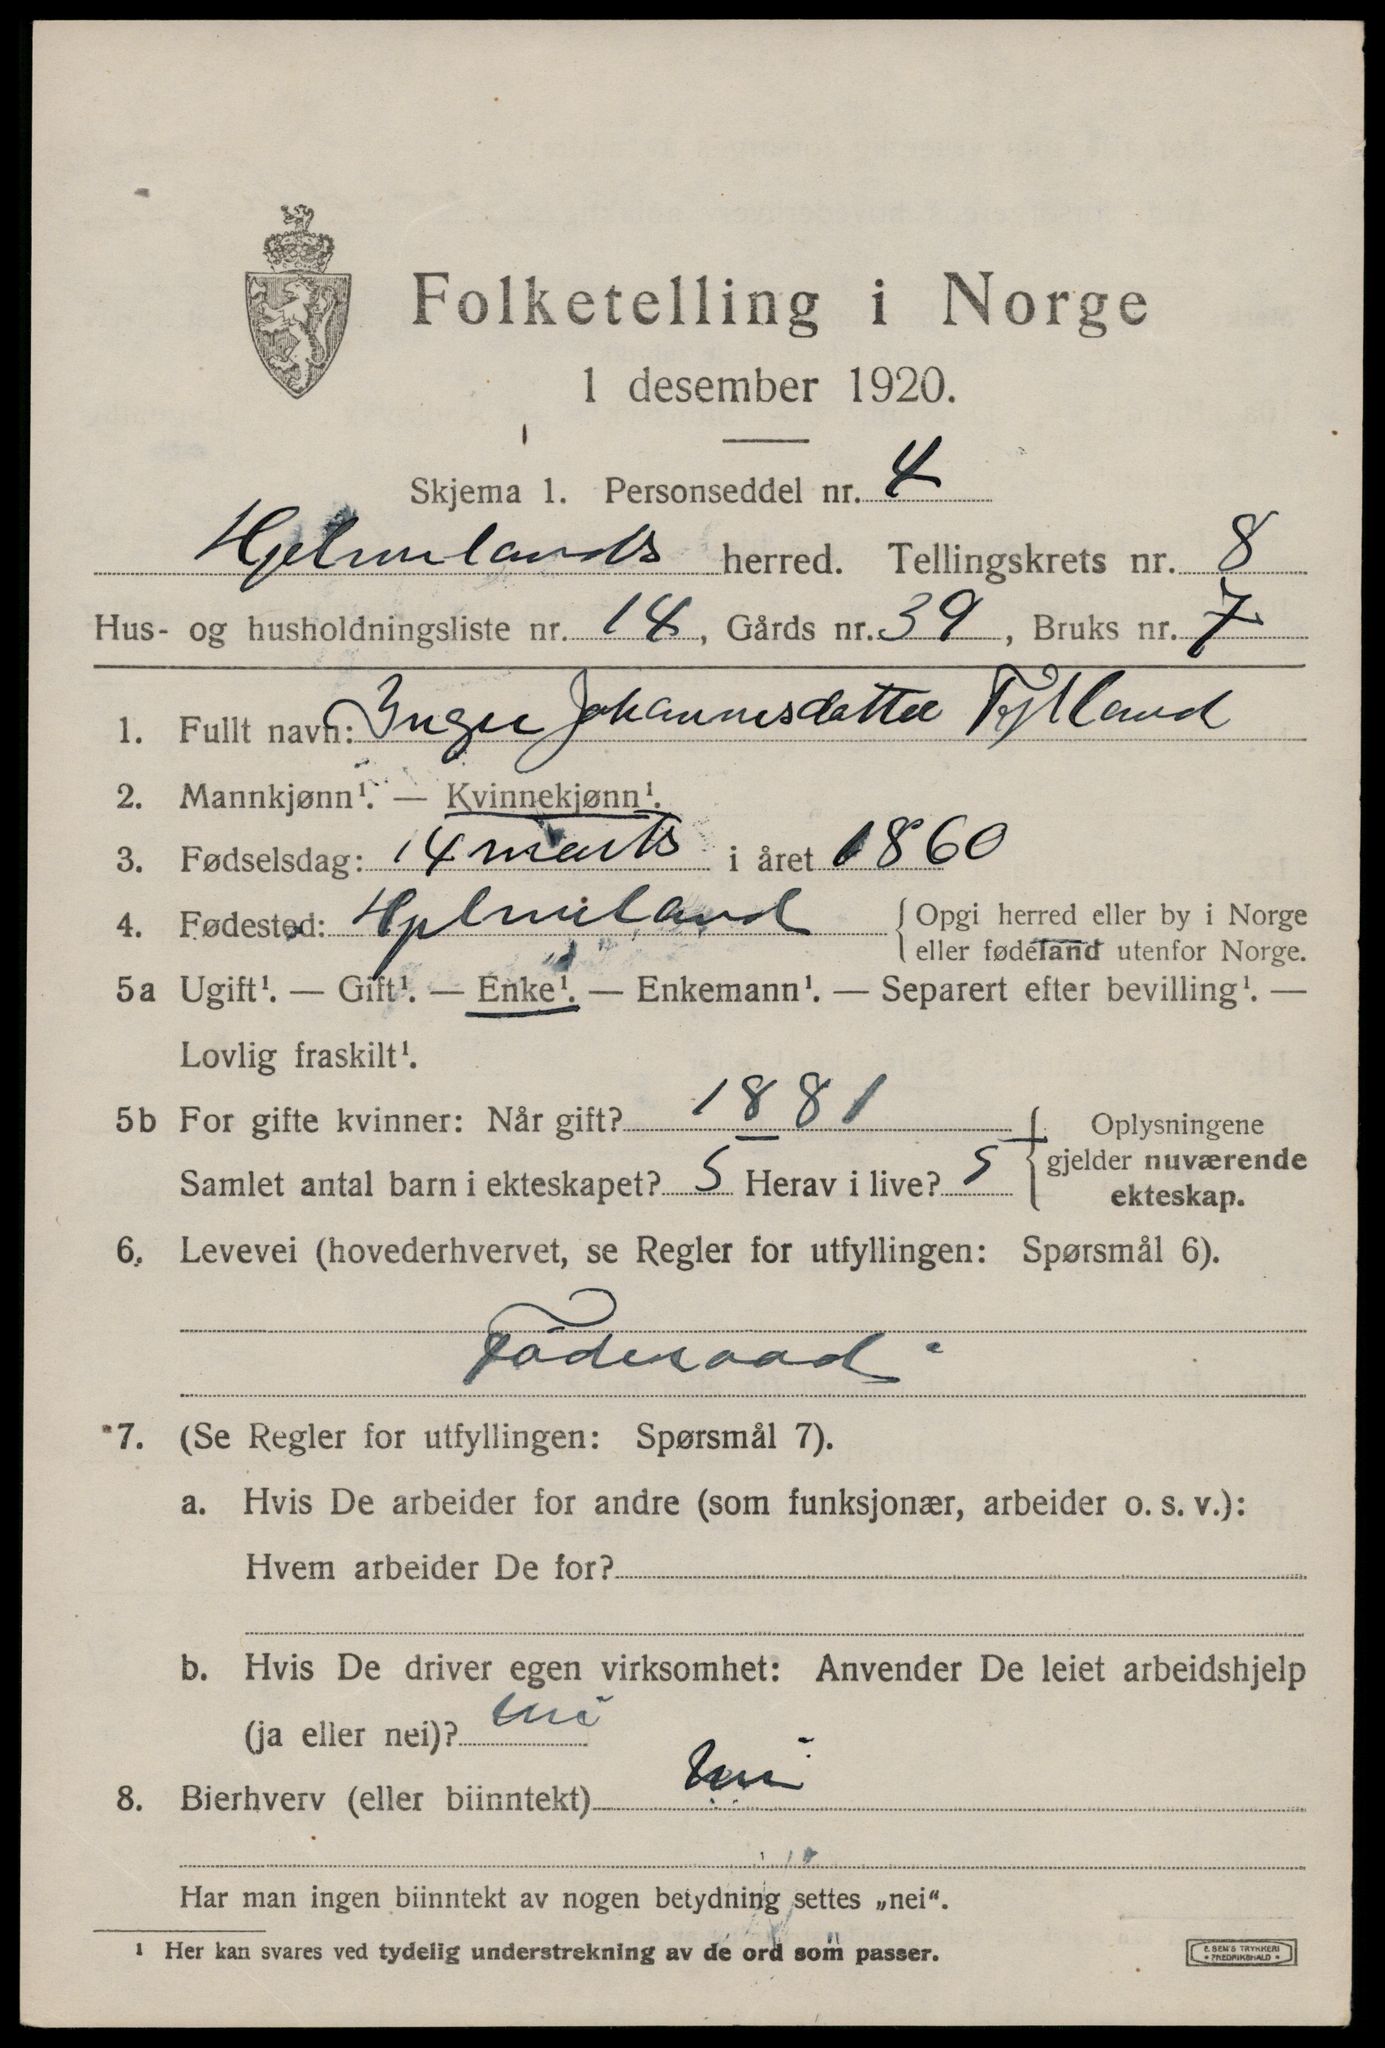 Folketelling i Norge
1 desember 1920.
Skjema 1. Personseddel nr. 4
Hjelmelands herred. Tellingskrets nr. 8
Hus- og husholdningsliste nr. 14, Gårds nr. 39, Bruks nr. 7
1. Fullt navn: Inger Johannesdatter
2. Mannkjønn¹. — Kvinnekjønn¹.
3. Fødselsdag: 14 marts i året 1860
4. Fødested: Hjelmeland { Opgi herred eller by i Norge
eller fødeland utenfor Norge.
5a Ugift¹. — Gift¹. — Enke¹. — Enkemann¹. — Separert efter bevilling¹. —
Lovlig fraskilt¹.
5b For gifte kvinner: Når gift? 1881
Samlet antal barn i ekteskapet? 5 Herav i live? 5
Oplysningene
gjelder nuværende
ekteskap.
6. Levevei (hovederhvervet, se Regler for utfyllingen: Spørsmål 6).
Föderaad
7. (Se Regler for utfyllingen: Spørsmål 7).
a. Hvis De arbeider for andre (som funksjonær, arbeider o. s. v.):
Hvem arbeider De for?
b. Hvis De driver egen virksomhet: Anvender De leiet arbeidshjelp
(ja eller nei)? nei
8. Bierhverv (eller biinntekt) nei
Har man ingen biinntekt av nogen betydning settes „nei“.
¹ Her kan svares ved tydelig understrekning av de ord som passer.
E. SEM'S TRYKKERI
• FREDRIKSHALD •